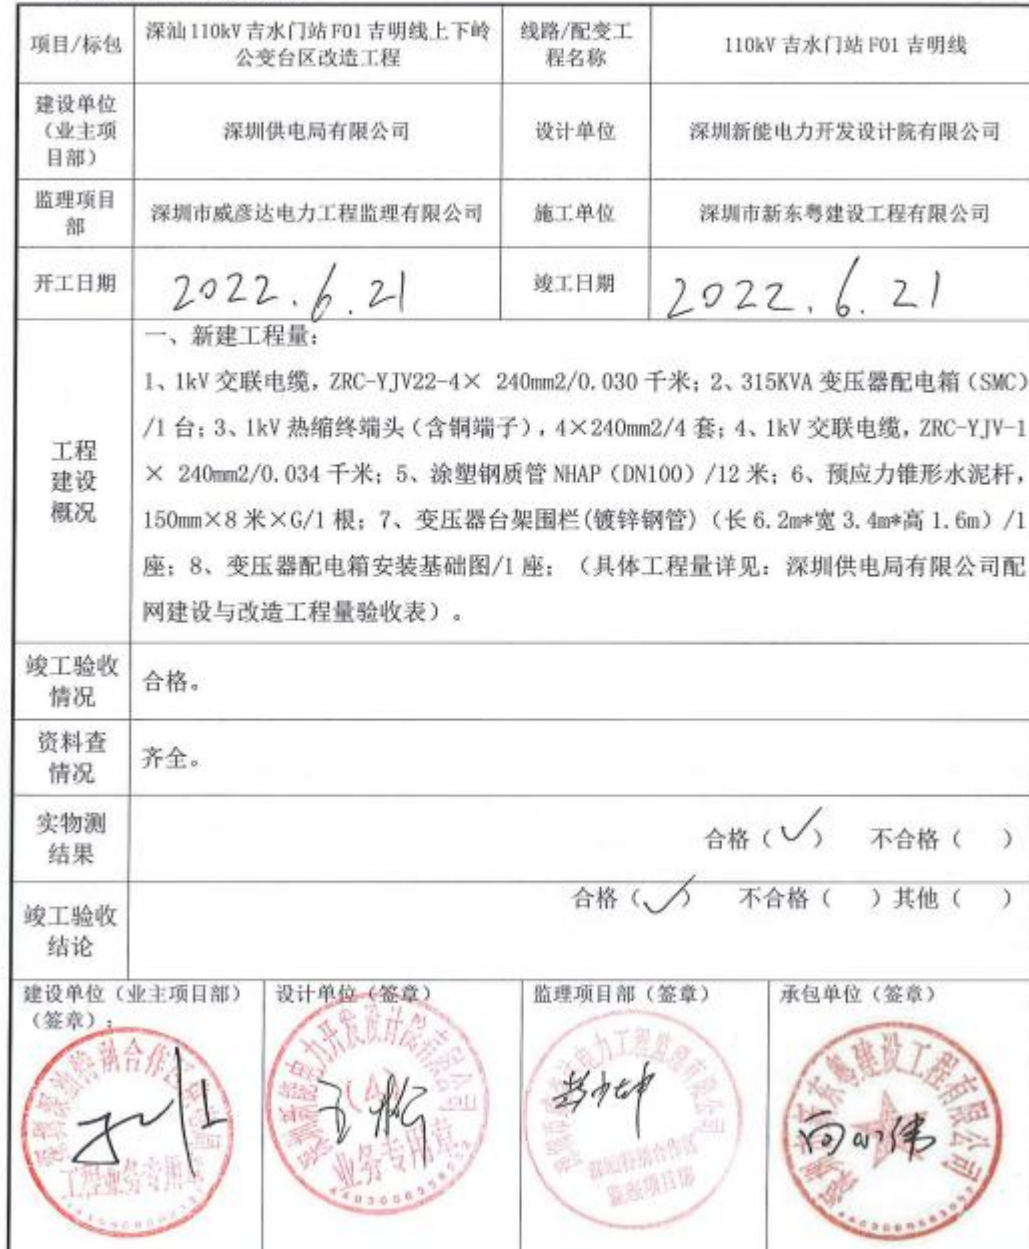 项目/标包
深汕110kV吉水门站F01吉明线上下岭
公变台区改造工程
线路/配变工
程名称
110kV吉水门站F01吉明线
建设单位
（业主项
目部）
深圳供电局有限公司
设计单位
深圳新能电力开发设计院有限公司
监理项目
部
深圳市威彦达电力工程监理有限公司
施工单位
深圳市新东粤建设工程有限公司
开工日期
2022.6.21
竣工日期
2022.6.21
工程
建设
概况
一、新建工程量：
1、1kV交联电缆，ZRC-YJV22-4× 240mm2/0.030千米；2、315KVA变压器配电箱（SMC）
/1台；3、1kV热缩终端头（含铜端子），4×240mm2/4套；4、1kV交联电缆，ZRC-YJV-1
× 240mm2/0.034千米；5、涂塑钢质管NHAP（DN100）/12米；6、预应力锥形水泥杆，
150mm×8米×G/1根；7、变压器台架围栏(镀锌钢管)（长6.2m*宽3.4m*高1.6m）/1
座；8、变压器配电箱安装基础图/1座；（具体工程量详见：深圳供电局有限公司配
网建设与改造工程量验收表）。
竣工验收
情况
合格。
资料查
情况
齐全。
实物测
结果
合格（✓） 不合格（ ）
竣工验收
结论
合格（✓） 不合格（ ）其他（ ）
建设单位（业主项目部）
（签章）：
工程业务专用章
设计单位（签章）
深圳新能电力开发设计院有限公司
业务专用章
监理项目部（签章）
监理项目部
承包单位（签章）
东粤建设工程有限公司